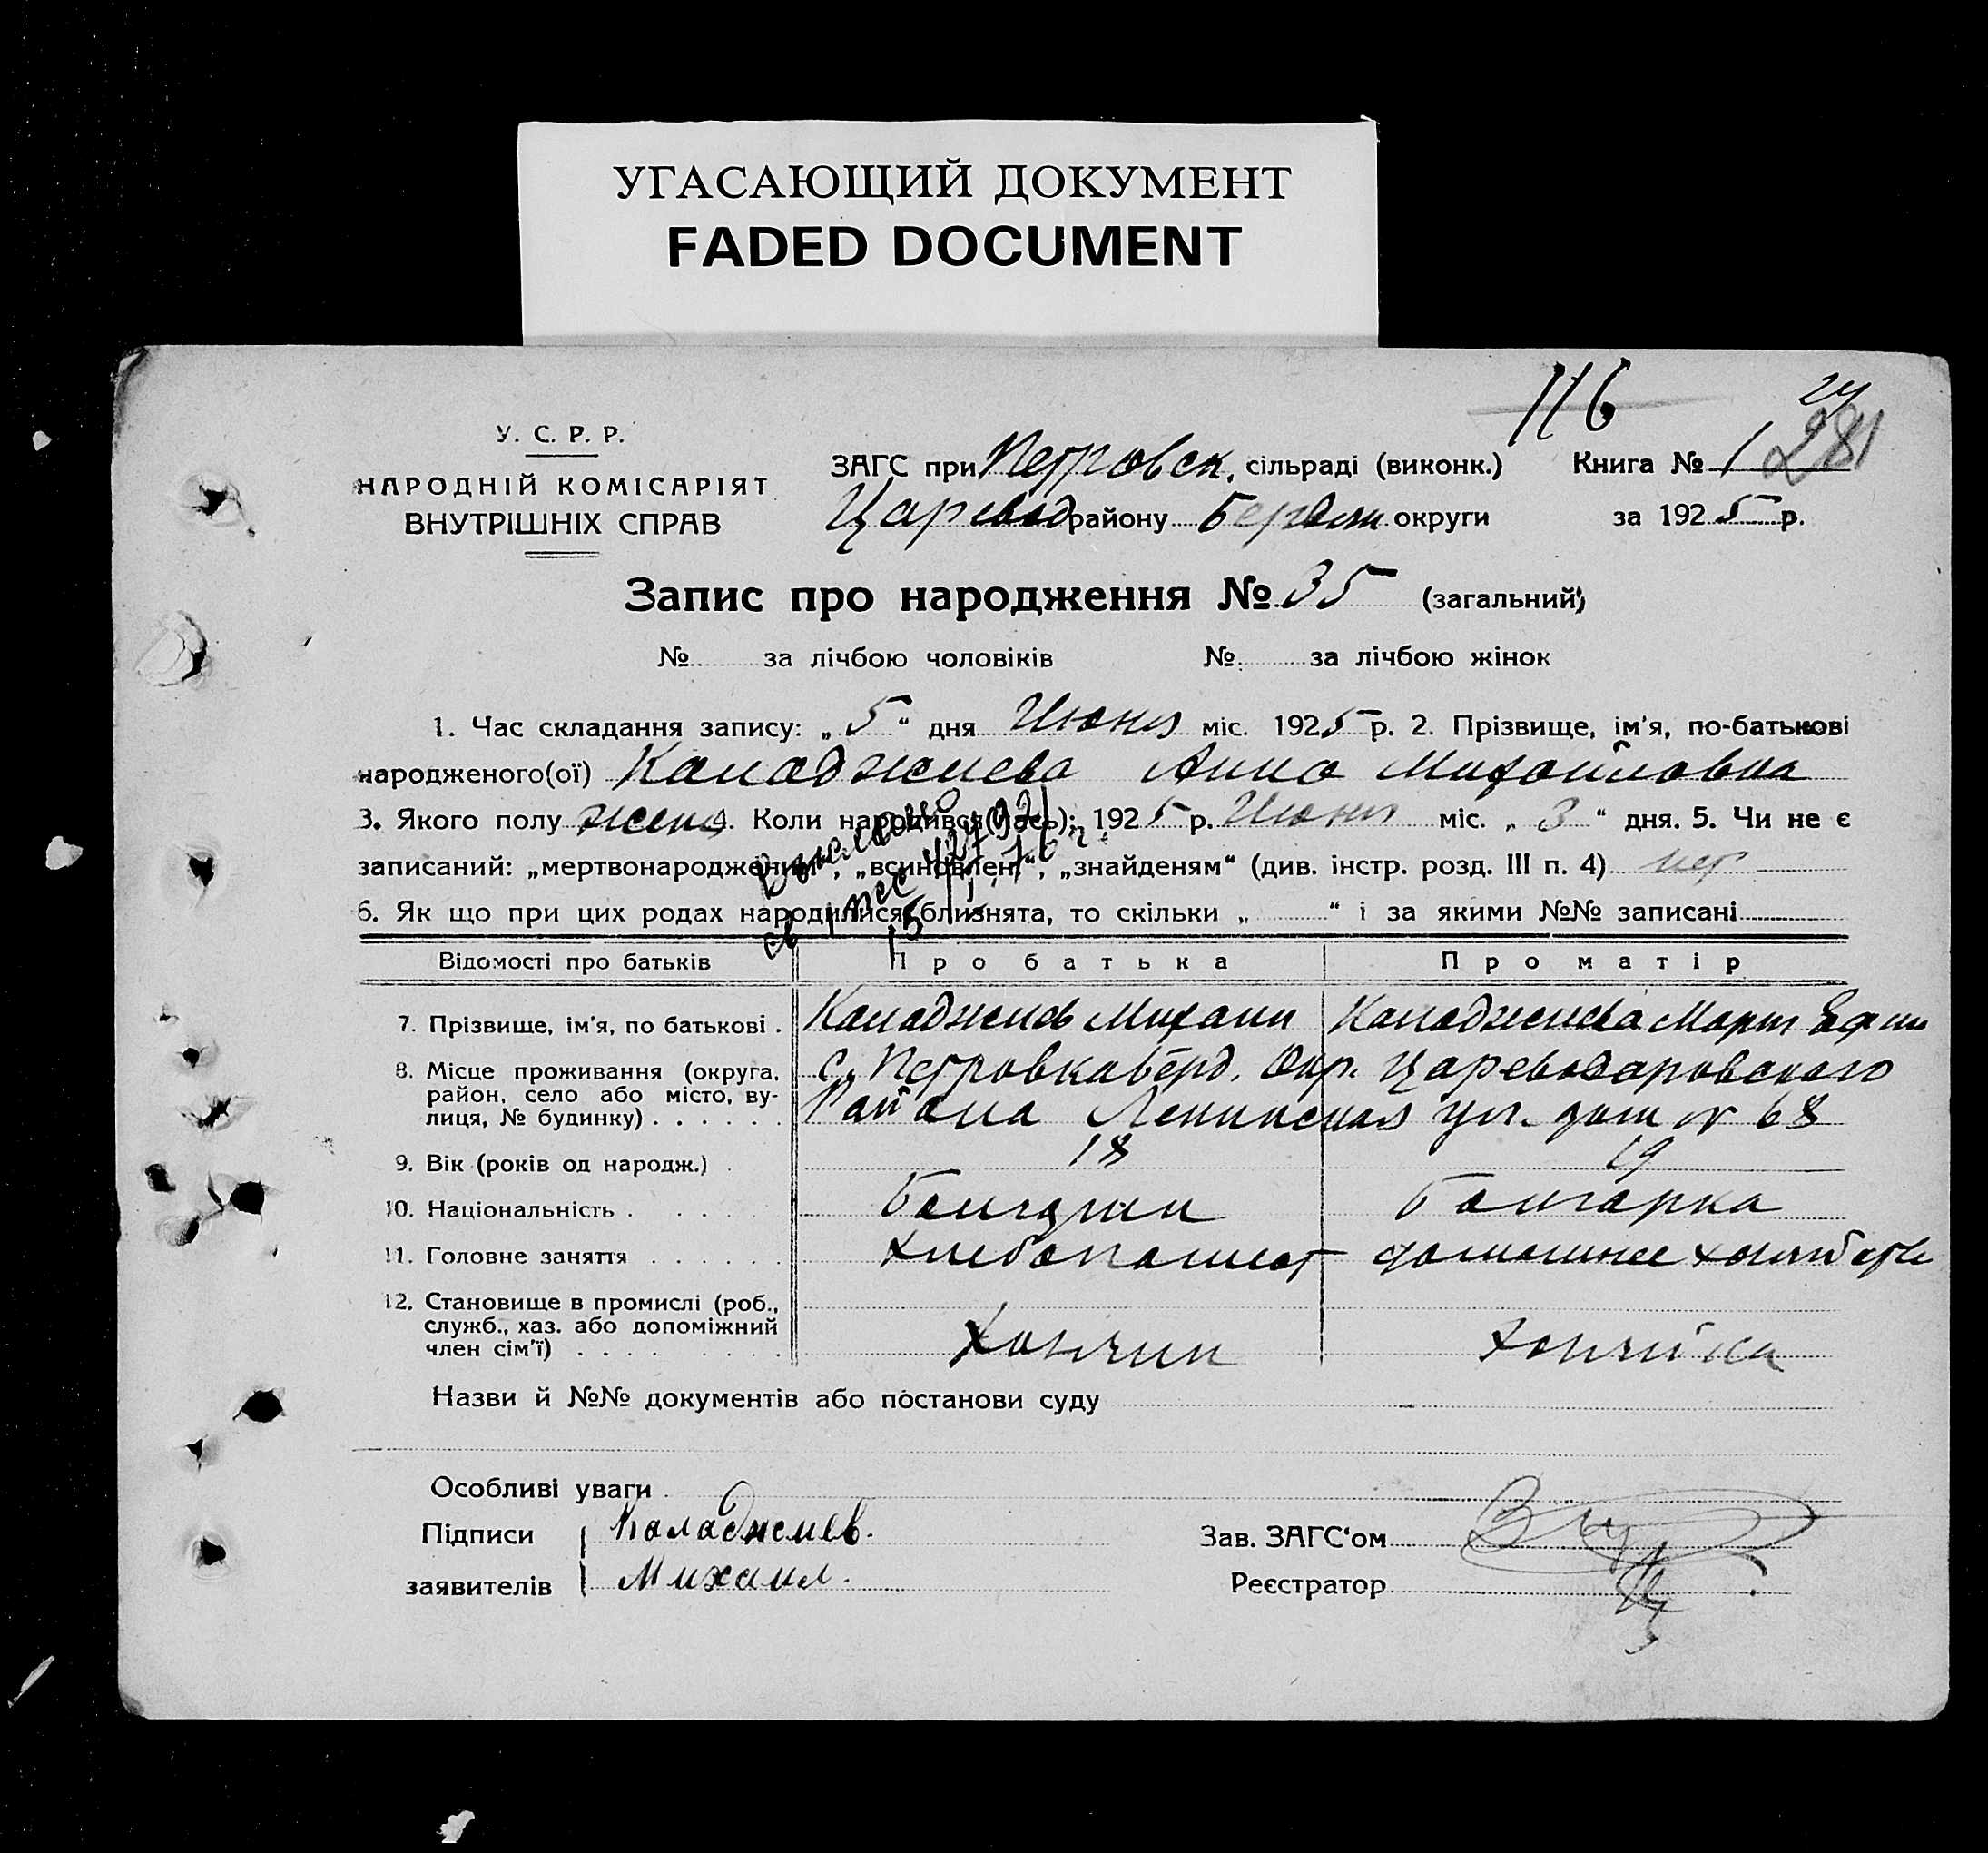 УГАСАЮЩИЙ ДОКУМЕНТ
FADED DOCUMENT
116
24
281
У. С. Р. Р.
НАРОДНІЙ КОМІСАРІЯТ
ВНУТРІШНІХ СПРАВ
ЗАГС при Петровск. сільраді (виконк.) Книга № 1
Царевод району Бердян округи за 1925 р.
Запис про народження № 35 (загальний)
№ за лічбою чоловіків № за лічбою жінок
1. Час складання запису: „5“ дня Июня міс. 1925 р. 2. Прізвище, ім'я, по-батькові
народженого(ої) Каладжиева Анна Михайловна
3. Якого полу жен 4. Коли народився(лась): 1925 р. Июня міс. „3“ дня. 5. Чи не є
записаний: „мертвонароджений“, „всиновлен“, „знайденям“ (див. інстр. розд. III п. 4) нет
6. Як що при цих родах народилися близнята, то скільки „ “ і за якими №№ записані
Відомості про батьків Про батька Про матір
7. Прізвище, ім'я, по батькові . Каладжиев Михаил Каладжиева Мария Ефим
8. Місце проживання (округа, район, село або місто, ву-лиця, № будинку) . . . . . . с. Петровка Берд. Окр. Цареводаровского
Района Ленинская ул. дом № 68
9. Вік (років од народж.) . 18 19
10. Національність . Болгарин Болгарка
11. Головне заняття . . . . . . Хлебопашест домашнее
12. Становище в промислі (роб., служб., хаз. або допоміжний член сім'ї) . . . . Хозяин Хозяйка
Назви й №№ документів або постанови суду
Особливі уваги
Підписи Каладжиев. Зав. ЗАГС'ом
заявителів Михаил. Реєстратор